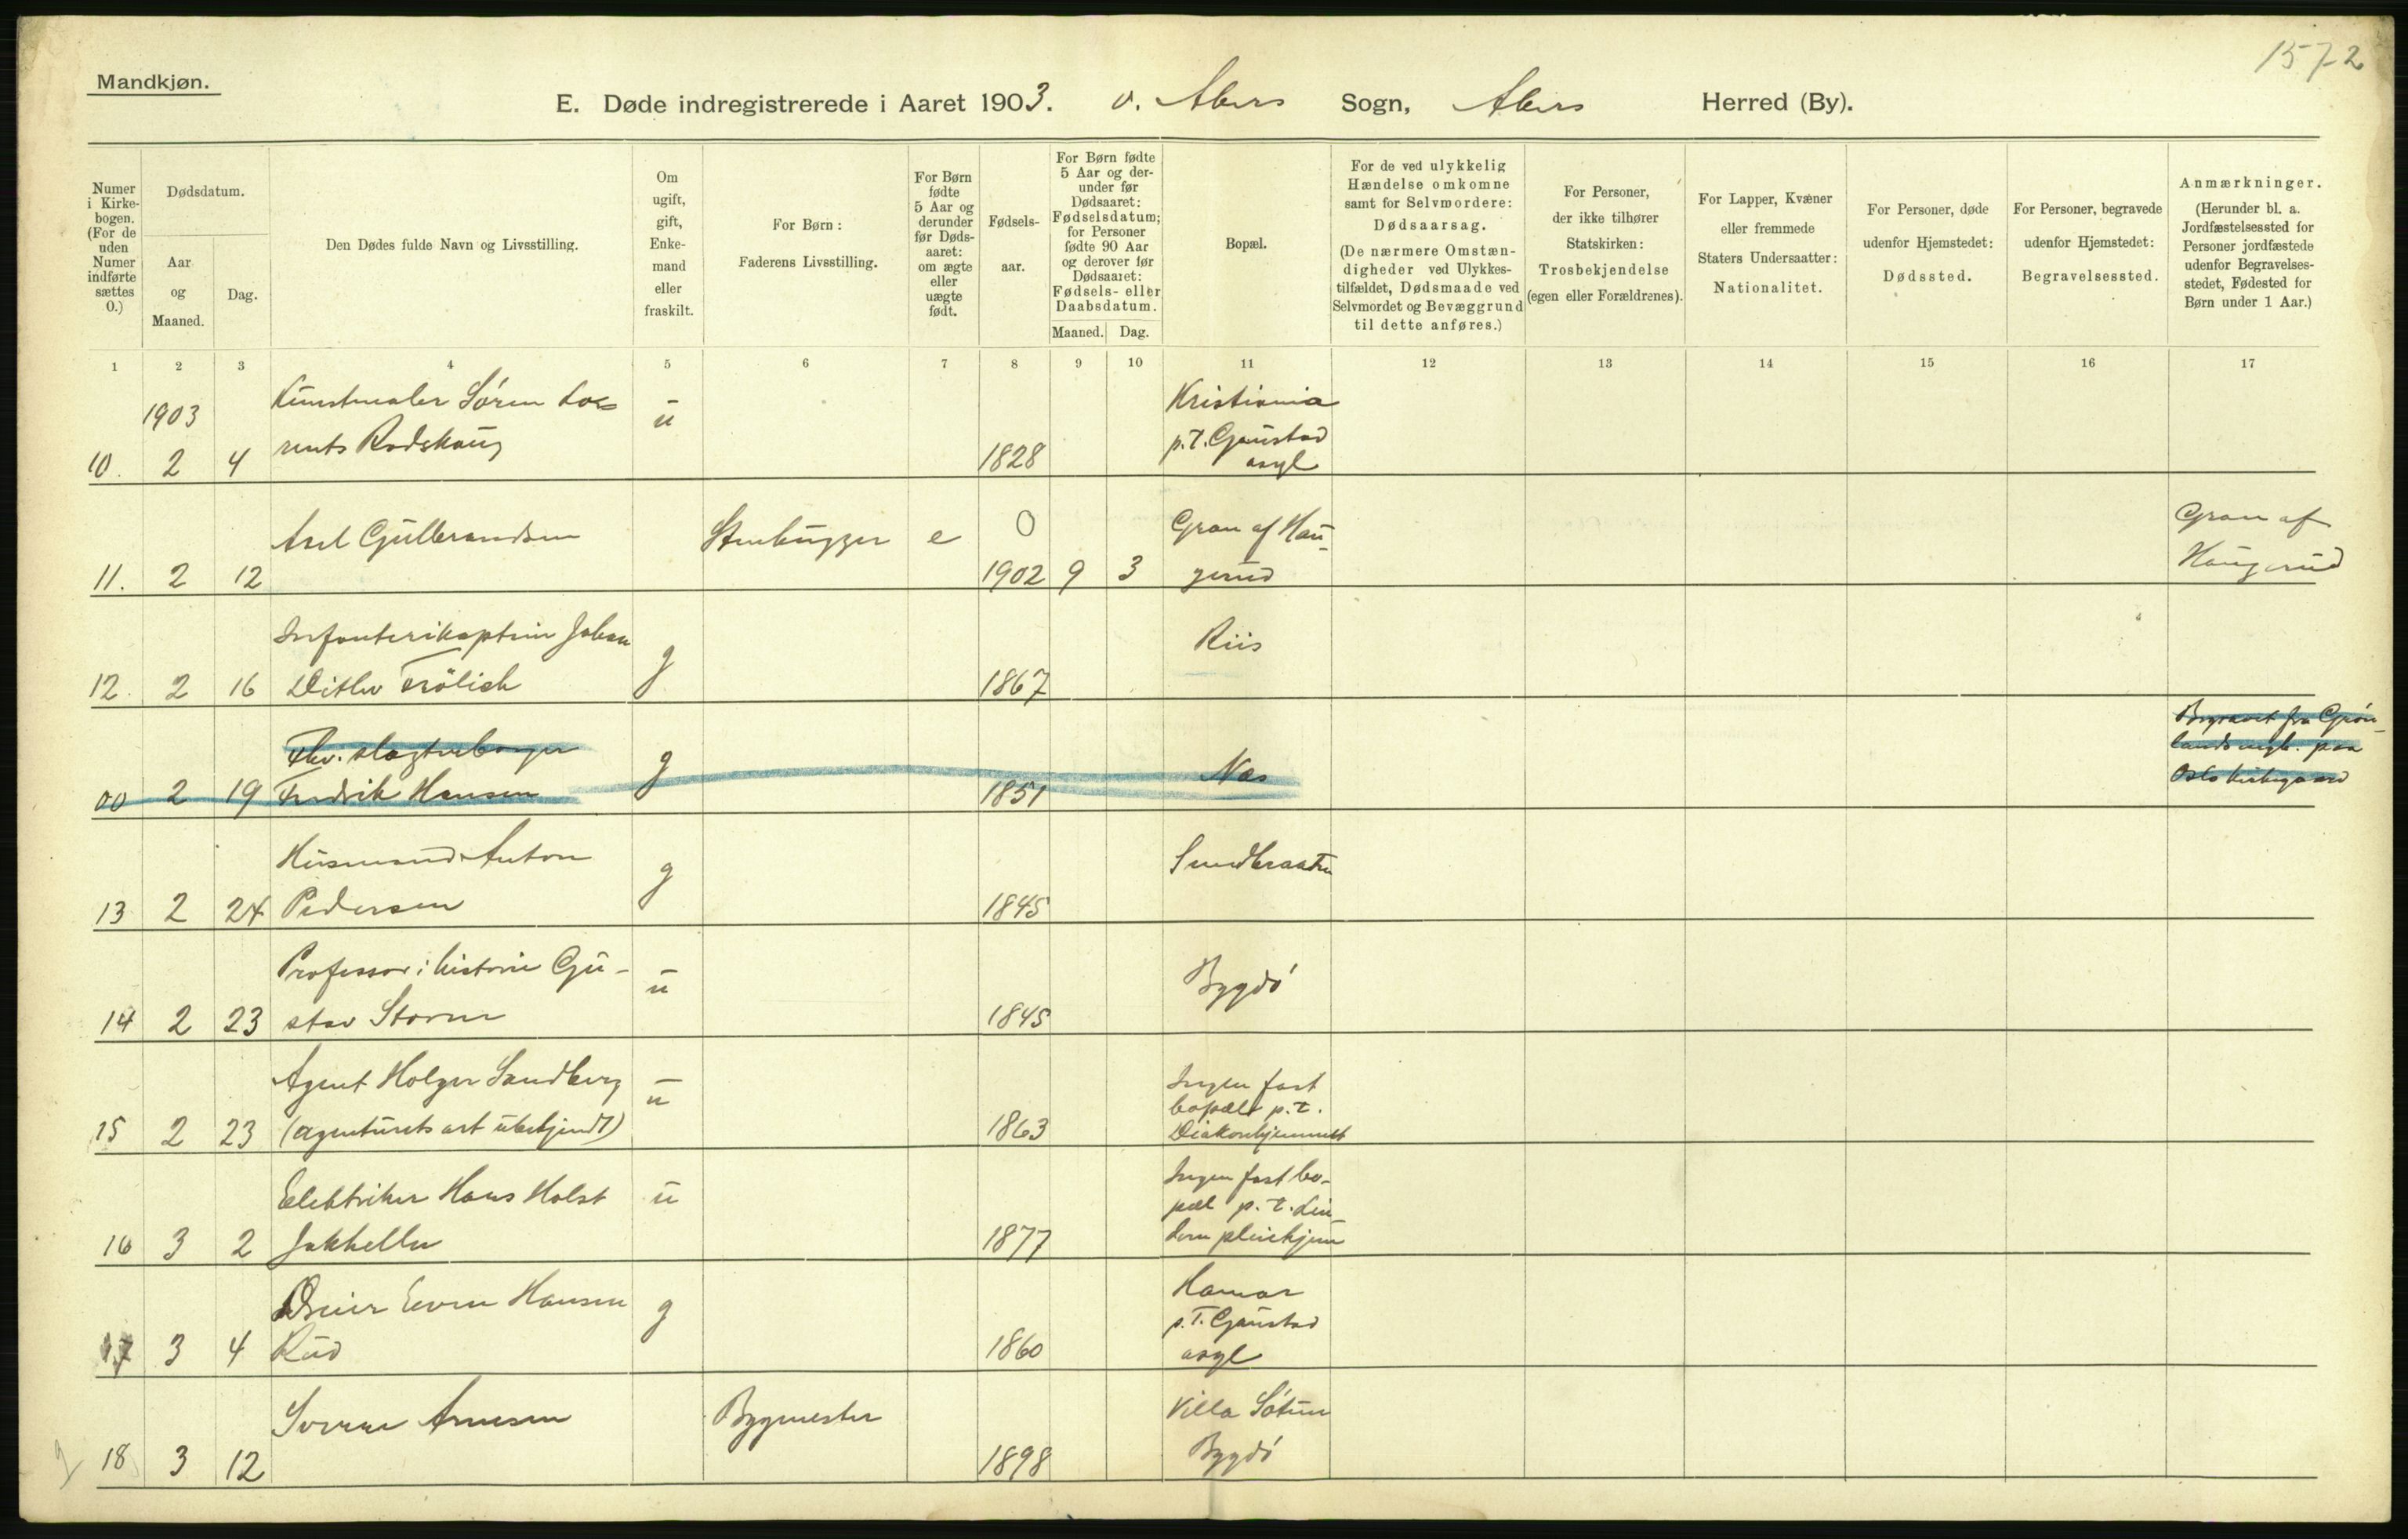 1572
Mandkjøn.
E. Døde indregistrerede i Aaret 1903. v. Akers Sogn, Akers Herred (By).
Numer i Kirkebogen. (For de uden Numer indførte sættes 0.)
Dødsdatum.
Aar og Maaned.
Dag.
Den Dødes fulde Navn og Livsstilling.
Om ugift, gift, Enkemand eller fraskilt.
For Børn: Faderens Livsstilling.
For Børn fødte 5 Aar og derunder før Dødsaaret: om ægte eller uægte født.
Fødselsaar.
For Børn fødte 5 Aar og derunder før Dødsaaret: Fødselsdatum; for Personer fødte 90 Aar og derover før Dødsaaret: Fødsels- eller Daabsdatum.
Maaned. Dag.
Bopæl.
For de ved ulykkelig Hændelse omkomne samt for Selvmordere: Dødsaarsag. (De nærmere Omstændigheder ved Ulykkestilfældet, Dødsmaade ved Selvmordet og Bevæggrund til dette anføres.)
For Personer, der ikke tilhører Statskirken: Trosbekjendelse (egen eller Forældrenes).
For Lapper, Kvæner eller fremmede Staters Undersaatter: Nationalitet.
For Personer, døde udenfor Hjemstedet: Dødssted.
For Personer, begravede udenfor Hjemstedet: Begravelsessted.
Anmærkninger. (Herunder bl. a. Jordfæstelsessted for Personer jordfæstede udenfor Begravelsesstedet, Fødested for Børn under 1 Aar.)
1 2 3 4 5 6 7 8 9 10 11 12 13 14 15 16 17
1903 Kunstmaler Sören Lau- u Kristiania
rents Rodskoug p.t. Gaustad
10. 2 4 1828 asyl
Axel Gulbrandsen Stenhugger e 0 Gran af Hau- Gran af
11. 2 12 1902 9 3 gerud Haugerud
Infanterikaptein Johan g Riis
12. 2 16 Ditlev Frölich 1867
Fhv. slagterborger g Næs Begravet fra Grön-
00 2 19 Fredrik Hansen 1851 lands mgh. paa
Oslo kirkegaard
Husmand Anton g Sundbraaten
13 2 24 Pedersen 1845
Professor i historie Gu- u Bygdö
14 2 23 stav Storm 1845
Agent Holger Sandberg u Ingen fast
15 2 23 (agenturets art ubekjendt) 1863 bopæl p.t.
Diakonhjemmet
Elektriker Hans Holst u Ingen fast bo-
16 3 2 Jakhelln 1877 pæl p.t. Lin-
dern pleiehjem
Dreier Even Hansen g Hamar
17 3 4 Rud 1860 p.t. Gaustad
asyl
Sverre Arnesen Bygmester Villa Sötun
18 3 12 1898 Bygdö